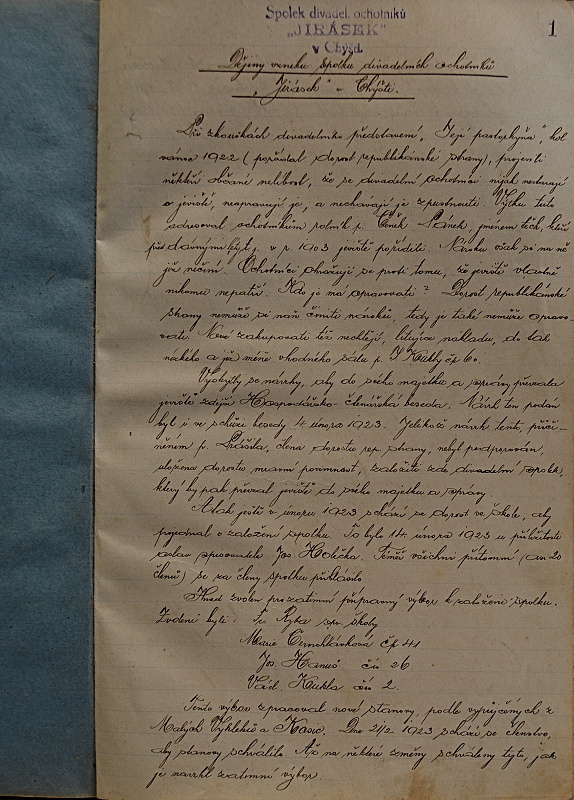 Spolek divadel. ochotníků
„JIRÁSEK"
v Chýšti.
1
Dějiny vzniku spolku divadelních ochotníků
„Jirásek" v Chýšti.
Při zkouškách divadelního představení „Její pastorkyňa", kol
vánoc 1922 (pořádal dorost republikánské strany), projevili
někteří občané nelibost, že se divadelní ochotníci nijak nestarají
o jeviště, neopravují je, a nechávají je zpustnouti. Výtku tuto
adresoval ochotníkům rolník p. Čeněk jménem těch, kteří
před dávnými léty t.j. v r. 1903 jeviště pořídili. Nároku však si na ně
již nečiní. Ochotníci ohražují se proti tomu, že jeviště vlastně
nikomu nepatří. Kdo je má opravovati? Dorost republikánské
strany nemůže si naň činiti nároků, tedy je také nemůže opravo-
vati. Nové zakupovati též nechtějí, litujíce nákladu, do tak
nízkého a již méně vhodného sálu p. J. Kukly čp 60.
Vyskytly se návrhy, aby do svého majetku a správy převzala
jeviště zdejší Hospodářsko-čtenářská beseda. Návrh ten podán
byl i ve schůzi besedy 4. února 1923. Jelikož návrh tento, přiči-
něním p. člena dorostu rep. strany, nebyl podporován,
uložena dorostu mravní povinnost, založiti zde divadelní spolek,
který by pak převzal jeviště do svého majetku a správy.
A tak ještě v únoru 1923 schází se dorost ve škole, aby
pojednal o založení spolku. To bylo 14. února 1923 u příležitosti
oslav spisovatele Jos. Holečka. Téměř všichni přítomní (asi 20
členů) se za členy spolku přihlásilo
Ihned zvolen prozatímní přípravný výbor k založení spolku.
Zvoleni byli: Fr. Ryba spr. školy
Marie Černohlávková čp 41.
Jos. Hanuš čís 26.
Václ. Kukla čís 2.
Tento výbor zpracoval nové stanovy, podle vypůjčených z
Malých Výklek a Kasic. Dne 21/2. 1923 schází se členstvo,
aby stanovy schválilo. Až na některé změny schváleny tyto, jak
je navrhl zatímní výbor.